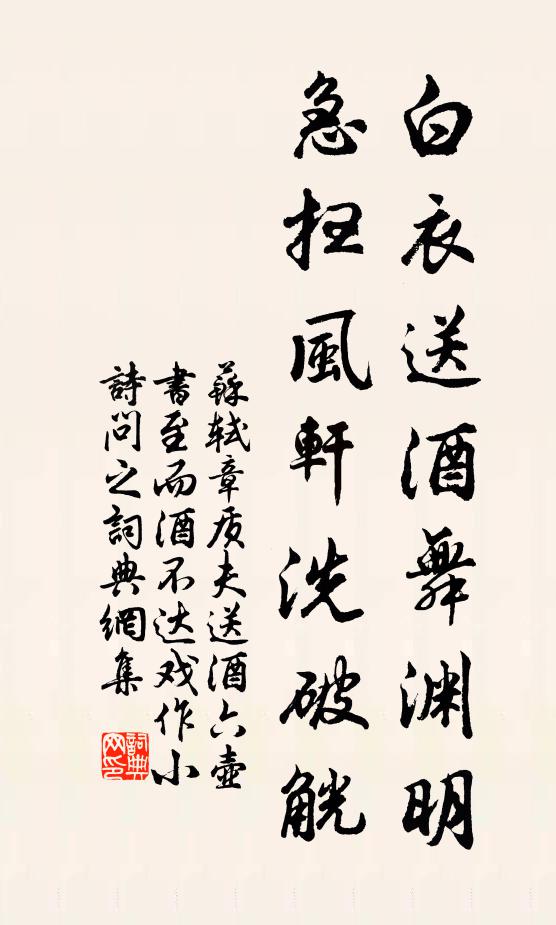 白衣送酒舞渊明
急扫風軒洗破觥
蘇轼章质夫送酒六壶
書至而酒不达戏作小
詩问之詞典網集
詞典网印